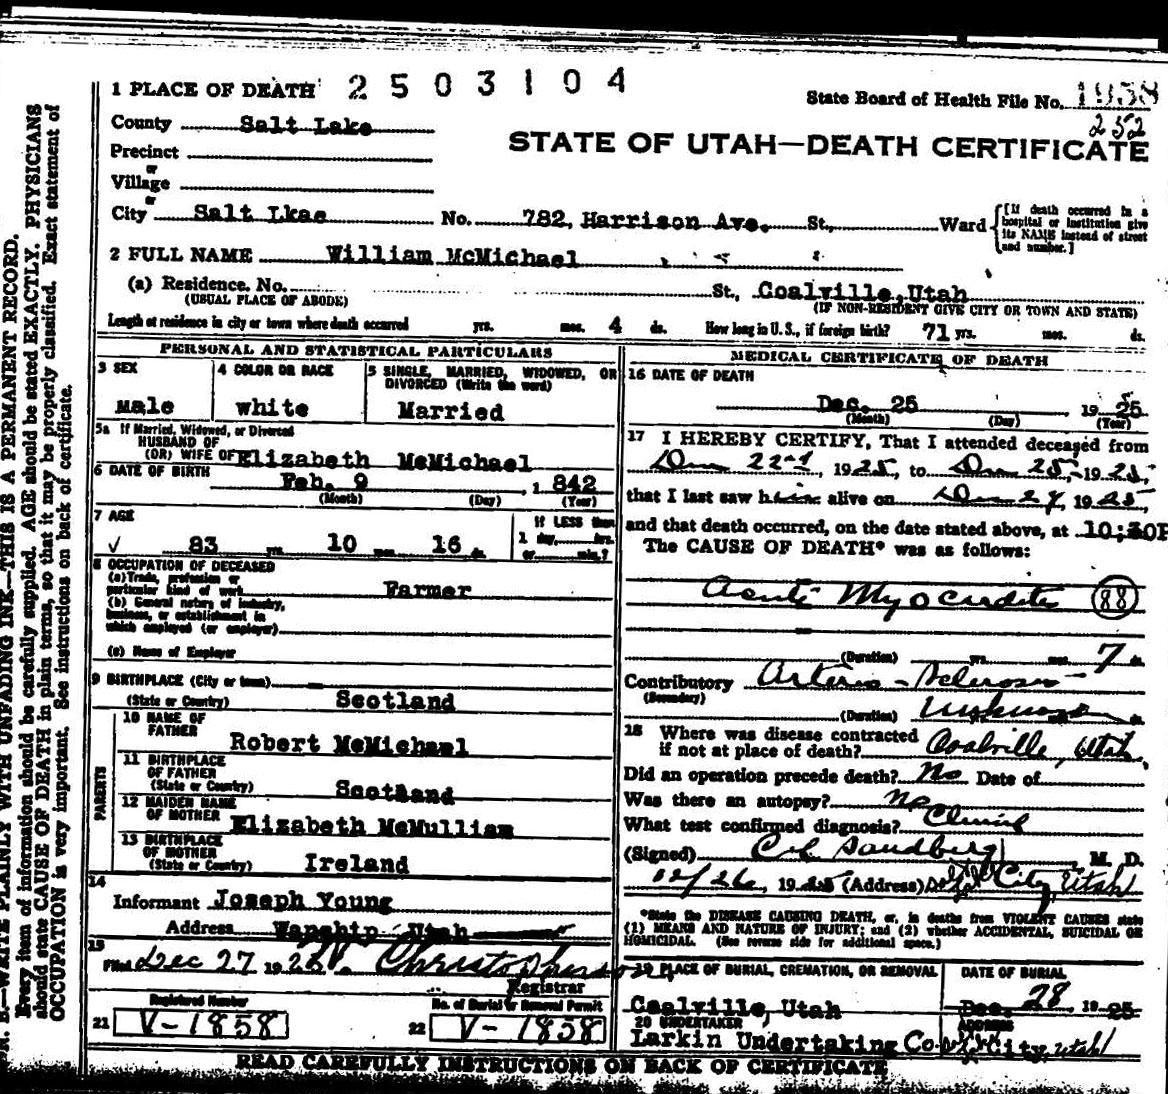 1 PLACE OF DEATH 2503104
State Board of Health File No. 1958
252
County Salt Lake
STATE OF UTAH—DEATH CERTIFICATE
Precinct
or
Village
or
City Salt Lkae No. 782, Harrison Ave. St., Ward [If death occurred in a hospital or institution give its NAME instead of street and number.]
2 FULL NAME William McMichael
(a) Residence. No. St., Coalville, Utah
(USUAL PLACE OF ABODE) (IF NON-RESIDENT GIVE CITY OR TOWN AND STATE)
Length of residence in city or town where death occurred yrs. mos. 4 ds. How long in U. S., if foreign birth? 71 yrs. mos. ds.
PERSONAL AND STATISTICAL PARTICULARS
3 SEX 4 COLOR OR RACE 5 SINGLE, MARRIED, WIDOWED, OR DIVORCED (Write the word)
Male white Married
5a If Married, Widowed, or Divorced
HUSBAND OF
(OR) WIFE OF Elizabeth McMichael
6 DATE OF BIRTH Feb. 9, 1842
(Month) (Day) (Year)
7 AGE If LESS than
83 yrs. 10 mos. 16 ds. 1 day, hrs.
or min.?
8 OCCUPATION OF DECEASED
(a) Trade, profession or
particular kind of work Farmer
(b) General nature of industry,
business, or establishment in
which employed (or employer)
(c) Name of Employer
9 BIRTHPLACE (City or town)
(State or Country) Scotland
PARENTS
10 NAME OF
FATHER Robert McMichael
11 BIRTHPLACE
OF FATHER
(State or Country) Scotland
12 MAIDEN NAME
OF MOTHER Elizabeth McMulliam
13 BIRTHPLACE
OF MOTHER
(State or Country) Ireland
14
Informant Joseph Young
Address Wanship, Utah
15
Filed Dec 27 192
Registrar
Registered Number No. of Burial or Removal Permit
21 V-1858 22 V-1858
MEDICAL CERTIFICATE OF DEATH
16 DATE OF DEATH
Dec. 25, 1925
(Month) (Day) (Year)
17 I HEREBY CERTIFY, That I attended deceased from
22nd, 1925, to 25, 1925,
that I last saw him alive on 24, 1925,
and that death occurred, on the date stated above, at 10:30P
The CAUSE OF DEATH* was as follows:
Acute Myocardites 88
(Duration) yrs. mos. 7 ds.
Contributory Arterio-Sclerosis
(Secondary)
(Duration) Unknown ds.
18 Where was disease contracted
if not at place of death? Coalville, Utah
Did an operation precede death? No Date of
Was there an autopsy? no
What test confirmed diagnosis? Clinical
(Signed) Sandberg, M. D.
12/26, 1925 (Address) City, Utah
*State the DISEASE CAUSING DEATH, or, in deaths from VIOLENT CAUSES state
(1) MEANS AND NATURE OF INJURY; and (2) whether ACCIDENTAL, SUICIDAL OR
HOMICIDAL. (See reverse side for additional space.)
19 PLACE OF BURIAL, CREMATION, OR REMOVAL DATE OF BURIAL
Coalville, Utah Dec. 28, 1925
20 UNDERTAKER ADDRESS
Larkin Undertaking Co. City, Utah
READ CAREFULLY INSTRUCTIONS ON BACK OF CERTIFICATE
N. B.—WRITE PLAINLY WITH UNFADING INK—THIS IS A PERMANENT RECORD.
Every item of information should be carefully supplied. AGE should be stated EXACTLY. PHYSICIANS
should state CAUSE OF DEATH in plain terms, so that it may be properly classified. Exact statement of
OCCUPATION is very important. See instructions on back of certificate.